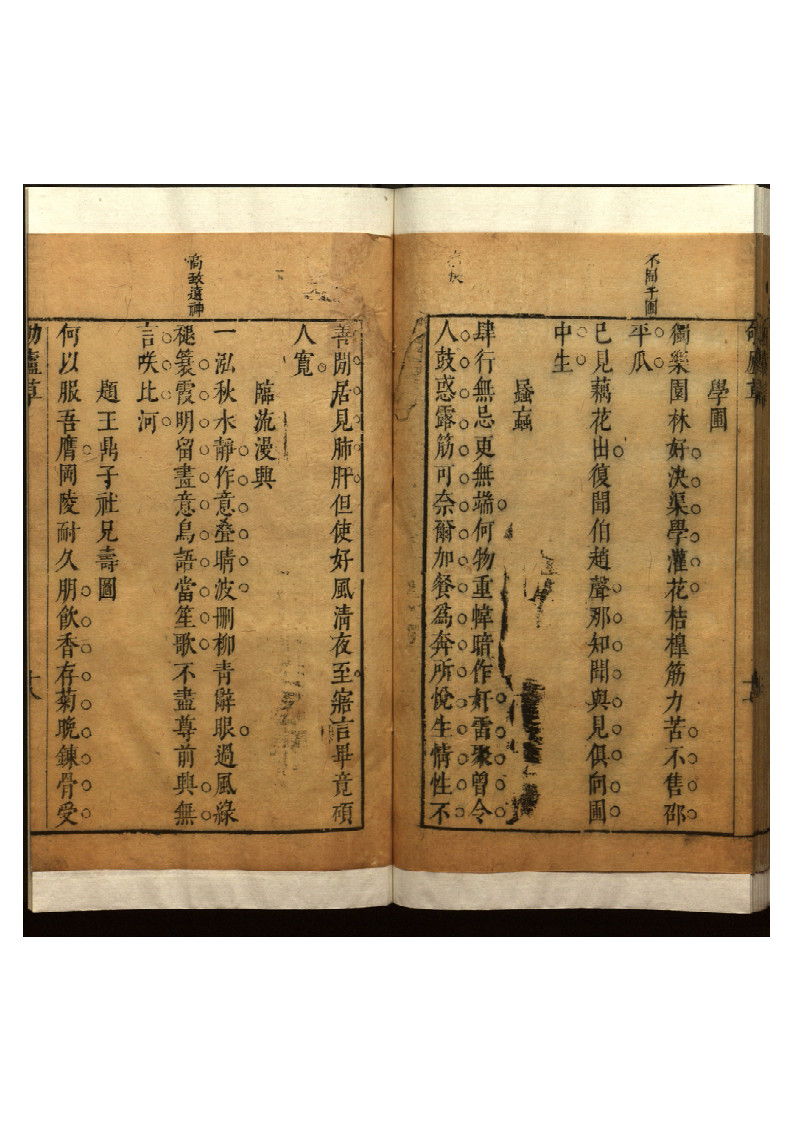 不伺千圃
學圃
獨樂園林好決渠學灌花桔槔筋力苦不售邵
平瓜
已見藕花出復聞伯趙聲那知聞與見俱向圃
中生
蚤蝨
肆行無忌更無端何物重幃暗作奸雷聚曾令
人鼓惑露筋可奈爾加餐為奔所悅生情性不
高致遠神
善閒居見肺肝但使好風清夜至寤言畢竟碩
人寬
臨流漫興
一泓秋水靜作意叠晴波刪柳青辭眼過風綠
褪簑霞明留畫意鳥語當笙歌不盡尊前興無
言咲比河
題王鼎子社兄壽圖
何以服吾膺岡陵耐久朋飲香存菊晚鍊骨受